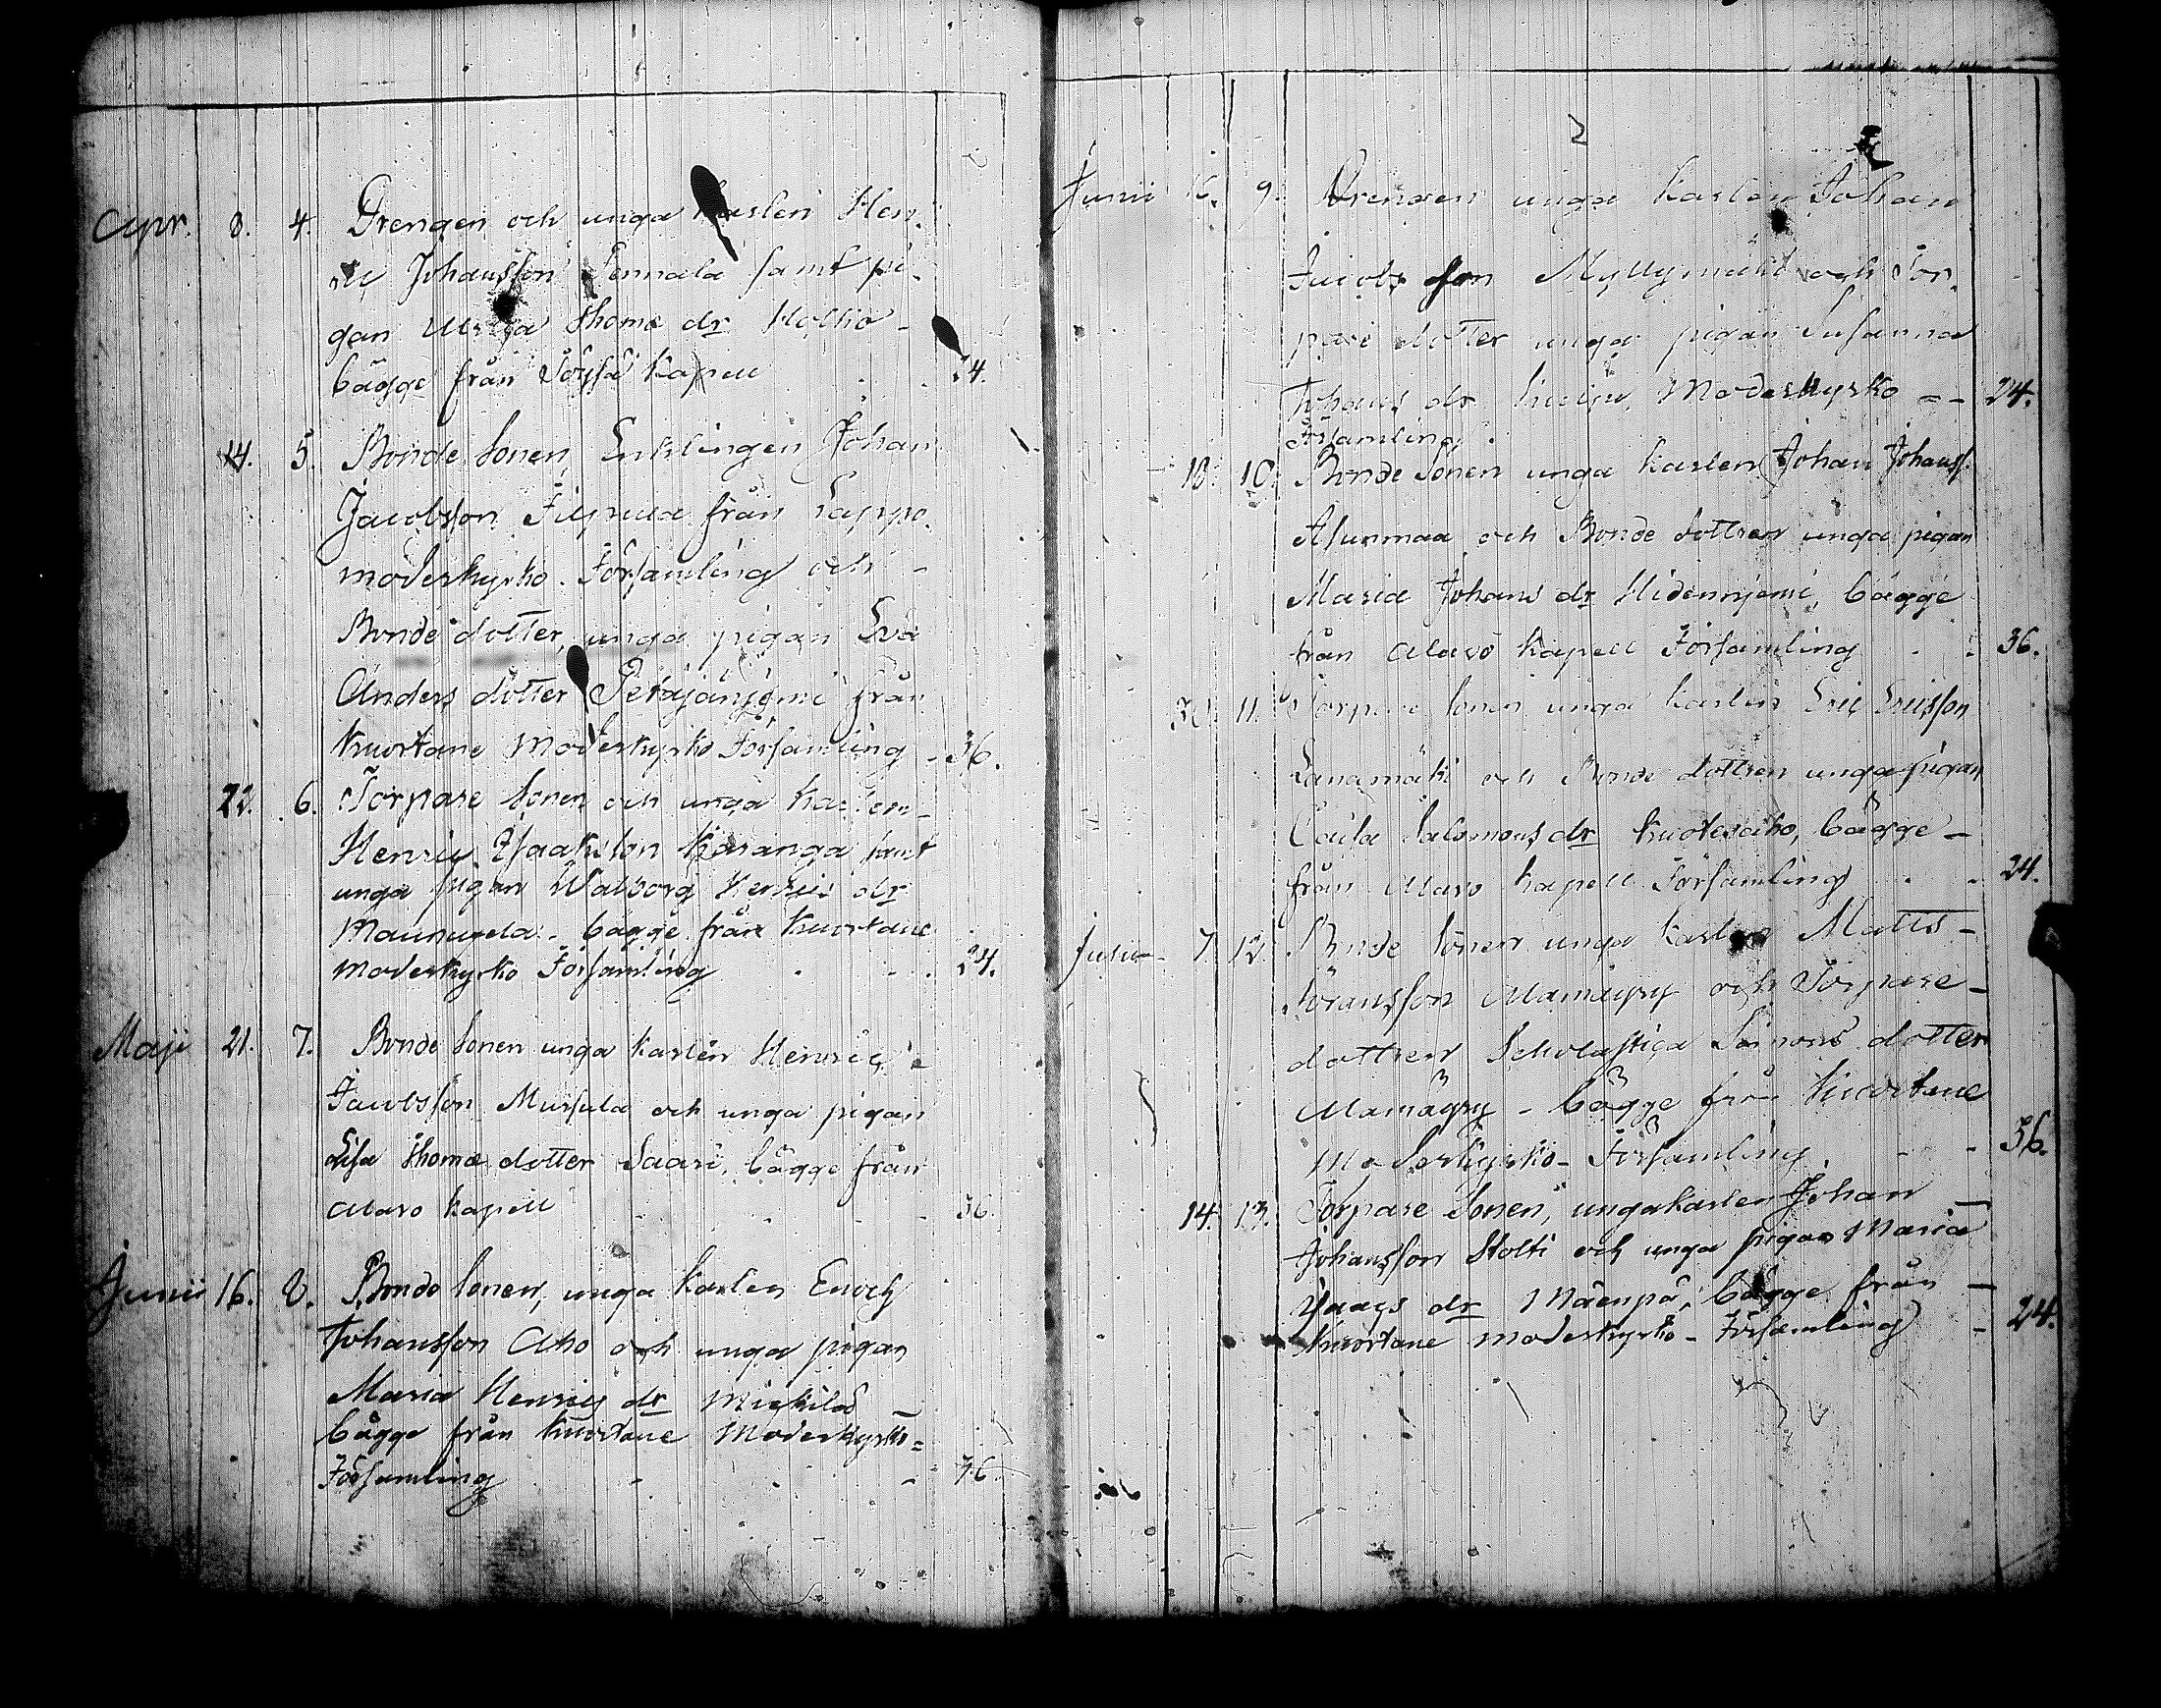 Apr. 8. 4. Drengen och unga Karlen Hen-
ric Johansson Sennala samt pi-
gan Thomæ dr Hollio -
bägge från Töysä Kapell . . 24.
14. 5. Bonde Sonen, Enklingen Johan
Jacobsson Filpula från Lappo
moderkyrko. Församling och -
Bonde dotter, unga pigan Eva
Anders dotter Petäjäniemi från
Kuortane Moderkyrko Församling - 36.
22. 6. Torpare Sonen och unga Karlen
Henric Isaaksson Karanga samt
unga pigan Walborg Henrics dr
Maunuxela - bägge från Kuortane
Moderkyrko Församling . - . 24.
Maji 21. 7. Bonde Sonen unga Karlen Henric -
Jacobsson Mursula och unga pigan
Lisa Thomæ dotter Saari, bägge från
Alavo Kapell - - - 36.
Junii 16. 8. Bonde Sonen, unga Karlen Enoch
Johansson Aho och unga pigan
Maria Henrics dr Mickilä
bägge från Kuortane Moderkyrko=
Församling - . - 36.
2
Junii 16. 9. Drengen unga Karlen Johan
Jacobsson Myllymäki och Tor-
pare dotter unga pigan Susanna
Johans dr Moderkyrko = - 24.
Församling.
18. 10. Bonde Sonen unga Karlen Johan Johanss.
Asunmaa och Bonde dottren unga pigan
Maria Johans dr Hidenniemi, bägge
från Alavo Kapell Församling . : 36.
30. 11. Torpare Sonen unga Karlen Eric Ericsson
Lanamäki och Bonde dottren unga pigan
Caisa Salomons dr Kuotesaho, bägge -
från Alavo Kapell Församling . . 24.
Julii - 7. 12. Bonde Sonen unga Karlen Matts -
Göransson Mamägry och Torpare -
dottren Scholastica Simons dotter
Mamägry - bägge från Kuortane
Moderkyrko - Församling. - - 36.
14. 13. Torpare Sonen, unga karlen Johan -
Johansson Stolti och unga pigan Maria
Isaacs dr Mäenpä, bägge från -
Kuortane moderkyrko - Församling - 24.